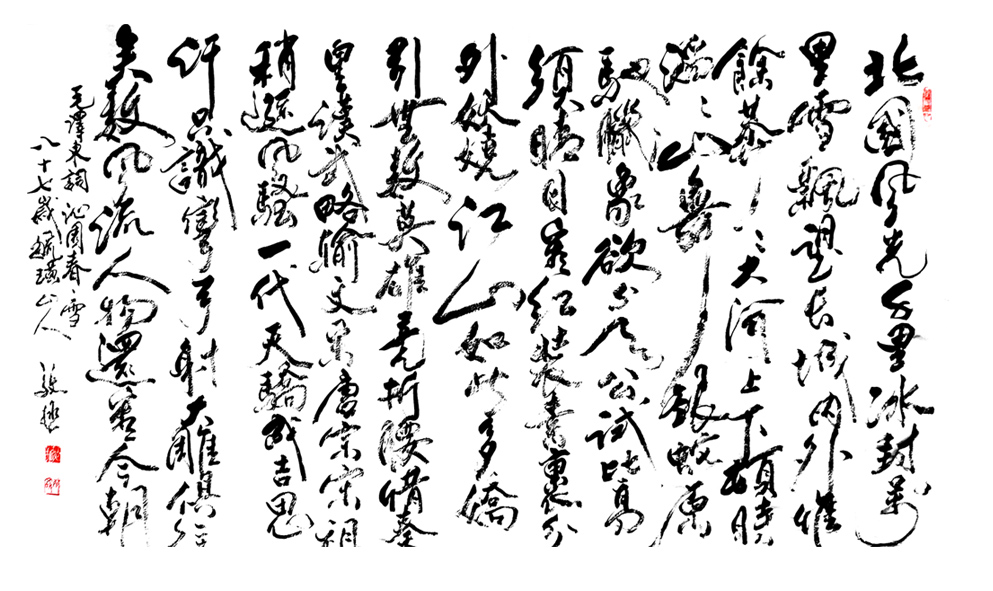 北國風光千里冰封萬
里雪飄望長城內外惟
餘莽〻大河上下頓時
滔〻山舞銀蛇原
馳臘象欲與天公試比高
須晴日看紅裝素裹分
外妖嬈江山如此多嬌
引無數英雄竟折腰惜秦
皇漢武略輸文采唐宗宋祖
稍遜風騷一代天驕成吉思
汗只識彎弓射大雕俱往
矣數風流人物還看今朝
毛澤東詞沁園春雪
八十七歲山人